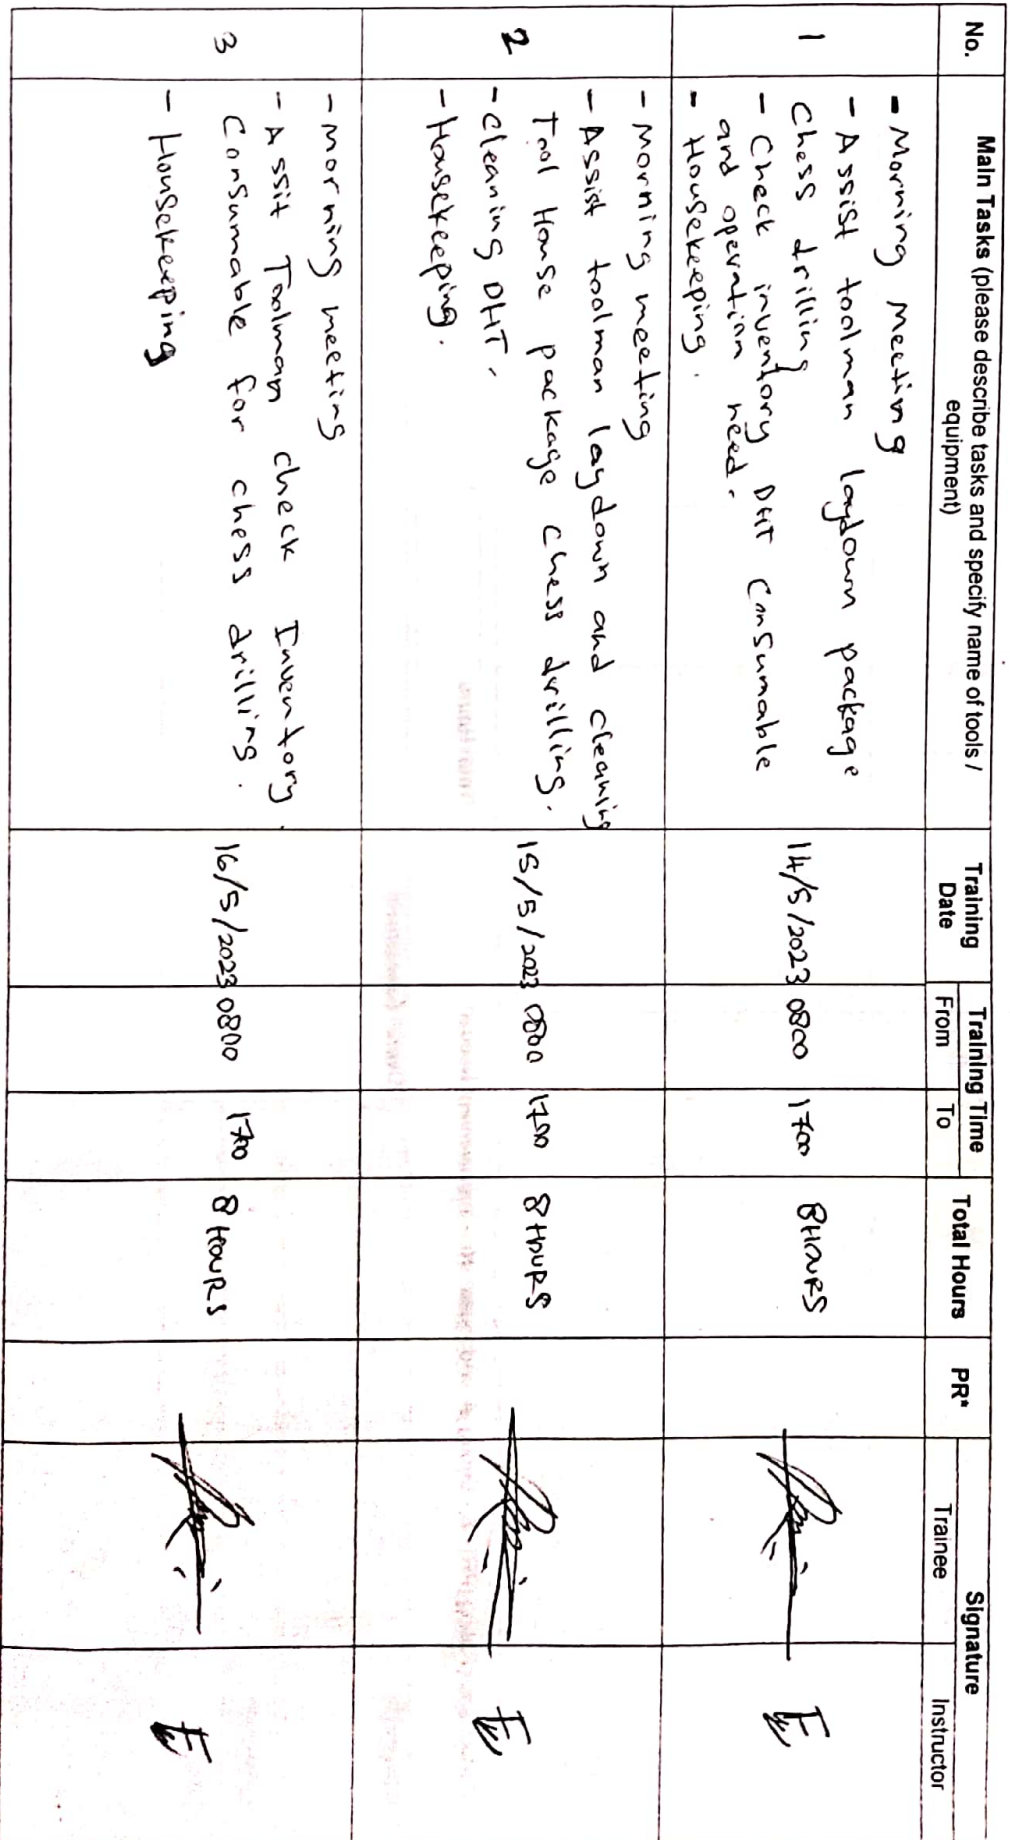 No.
Main Tasks (please describe tasks and specify name of tools /
equipment)
Training
Date
Training Time
From
To
Total Hours
PR*
Signature
Trainee
Instructor
1
- Morning Meeting
- Assist toolman laydown package
Chess drilling
- Check inventory DHT Consumable
and operation need.
- Housekeeping.
14/5/2023
0800
1700
8 HOURS
2
- Morning meeting
- Assist toolman laydown and cleaning
Tool House package chess drilling.
- Cleaning DHT.
- Housekeeping.
15/5/2023
0800
1700
8 HOURS
3
- Morning meeting
- Assit Toolman check Inventory.
Consumable for chess drilling.
- Housekeeping
16/5/2023
0800
1700
8 HOURS